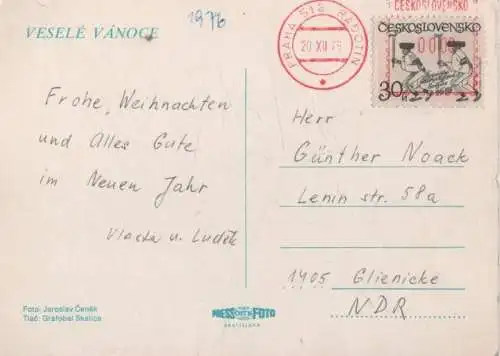 1976
VESELÉ VÁNOCE
ČESKOSLOVENSKO
PRAHA 512 RADOTÍN
20 XII 76
ČESKOSLOVENSKO
30
Frohe, Weihnachten
und Alles Gute
im Neuen Jahr
Vlasta u. Luděk
Herr
Günther Noack
Lenin str. 58a
1405 Glienicke
NDR
Foto: Jaroslav Čeněk
Tlač: Grafobal Skalica
PRESSFOTO
BRATISLAVA